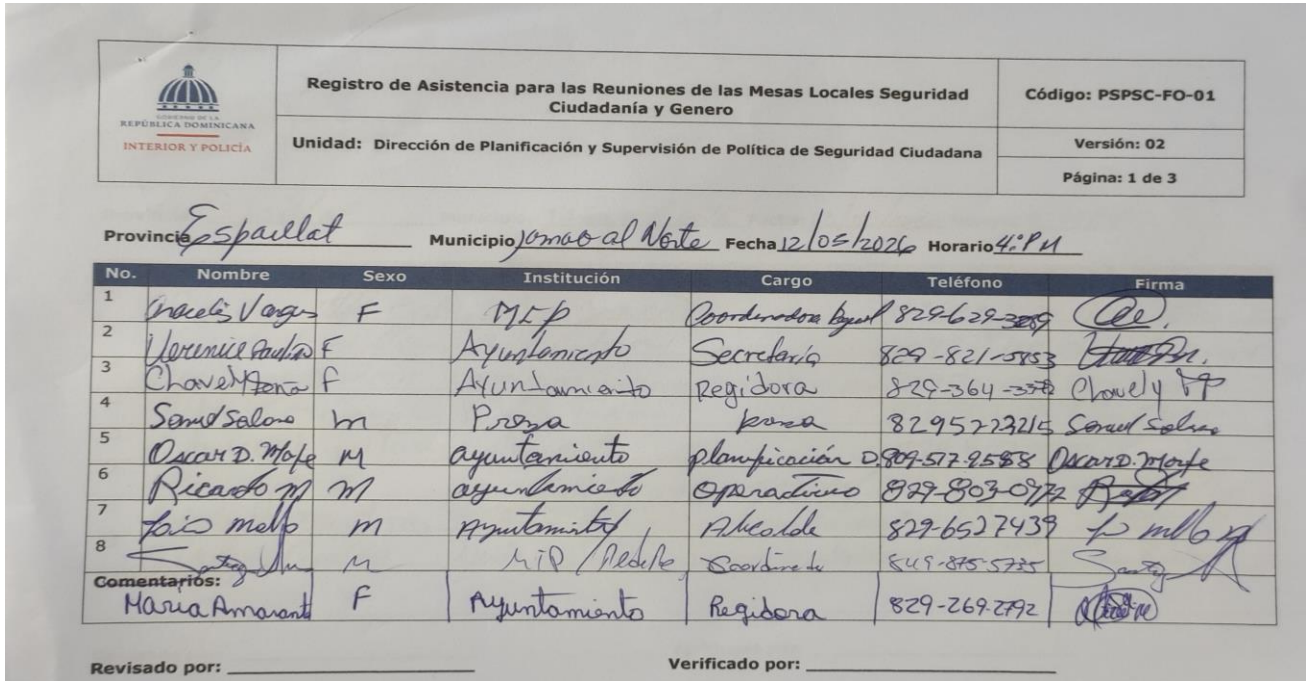 GOBIERNO DE LA
REPÚBLICA DOMINICANA
INTERIOR Y POLICÍA
Registro de Asistencia para las Reuniones de las Mesas Locales Seguridad
Ciudadanía y Genero
Unidad: Dirección de Planificación y Supervisión de Política de Seguridad Ciudadana
Código: PSPSC-FO-01
Versión: 02
Página: 1 de 3
Provincia Espaillat Municipio Jamao al Norte Fecha 12/05/2026 Horario 4:PM
No. Nombre Sexo Institución Cargo Teléfono Firma
1 Vargas F MIP Coordinadora 829-629-
2 F Ayuntamiento Secretaria 829-821-
3 Chavely F Ayuntamiento Regidora 829-364- Chavely
4 m 8295223215
5 Oscar D. M ayuntamiento planificación D. 809-517-9588 Oscar D.
6 Ricardo M m ayuntamiento Operativo 829-803-0972
7 m Alcalde 829-6527439
8 M MIP 849-875-5735
Comentarios:
Maria Amarant F Ayuntamiento Regidora 829-269-2792
Revisado por: Verificado por: